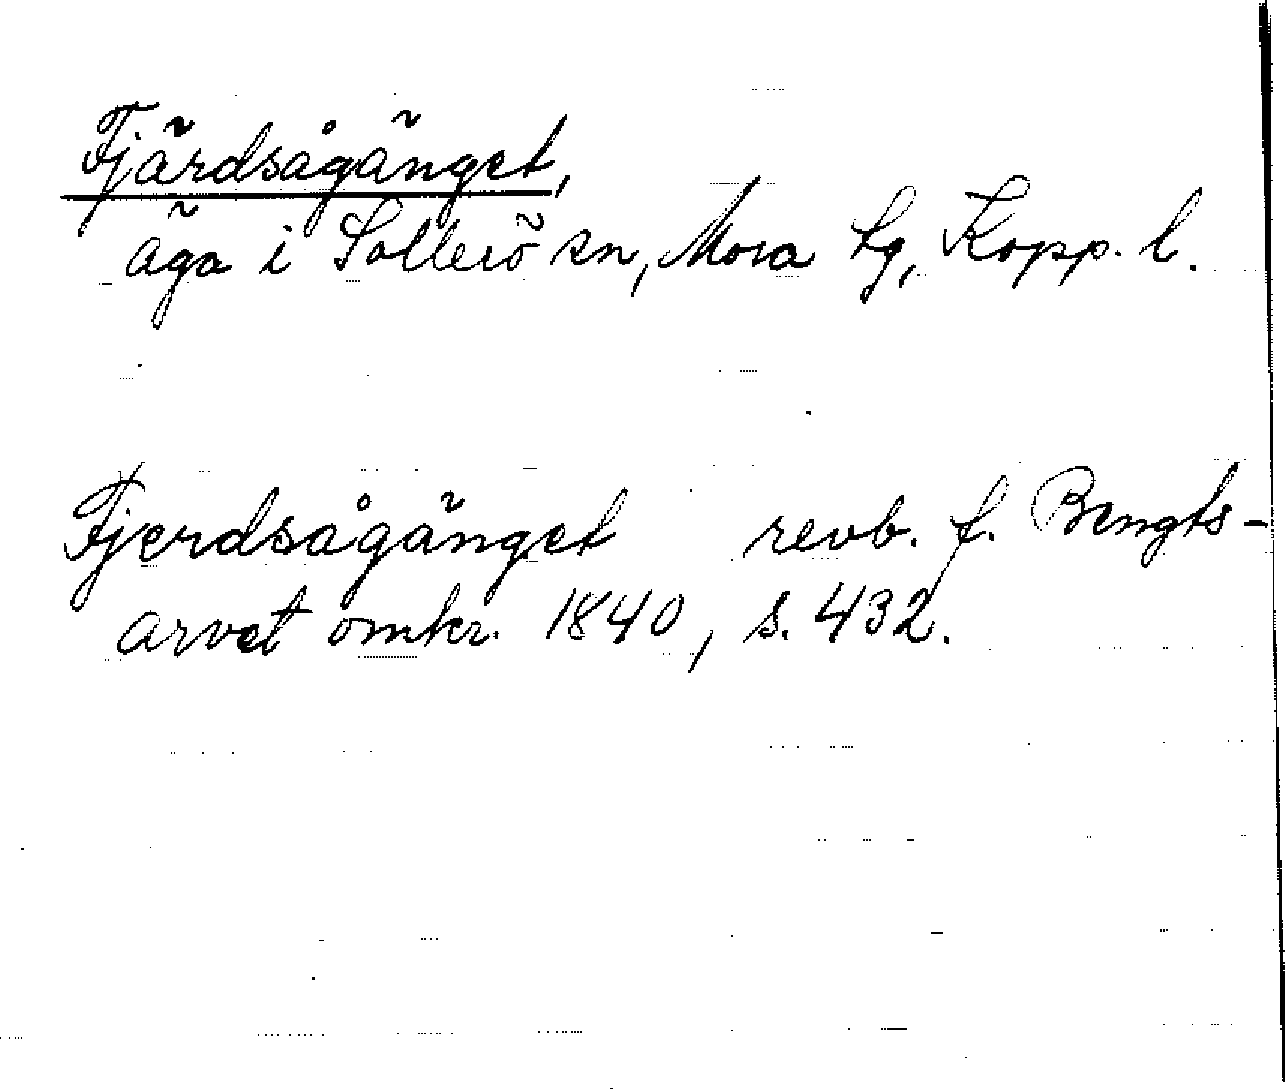 Fjärdsågänget,
äga i Sollerö sn, Mora tg, Kopp. l.
Fjerdsågänget revb. f. Bengts-
arvet omkr. 1840, s. 432.